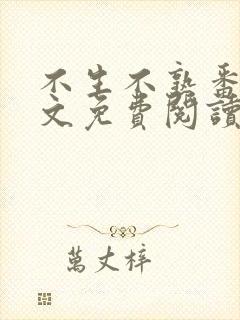 不生不熟番
文免費閱讀
萬丈梓